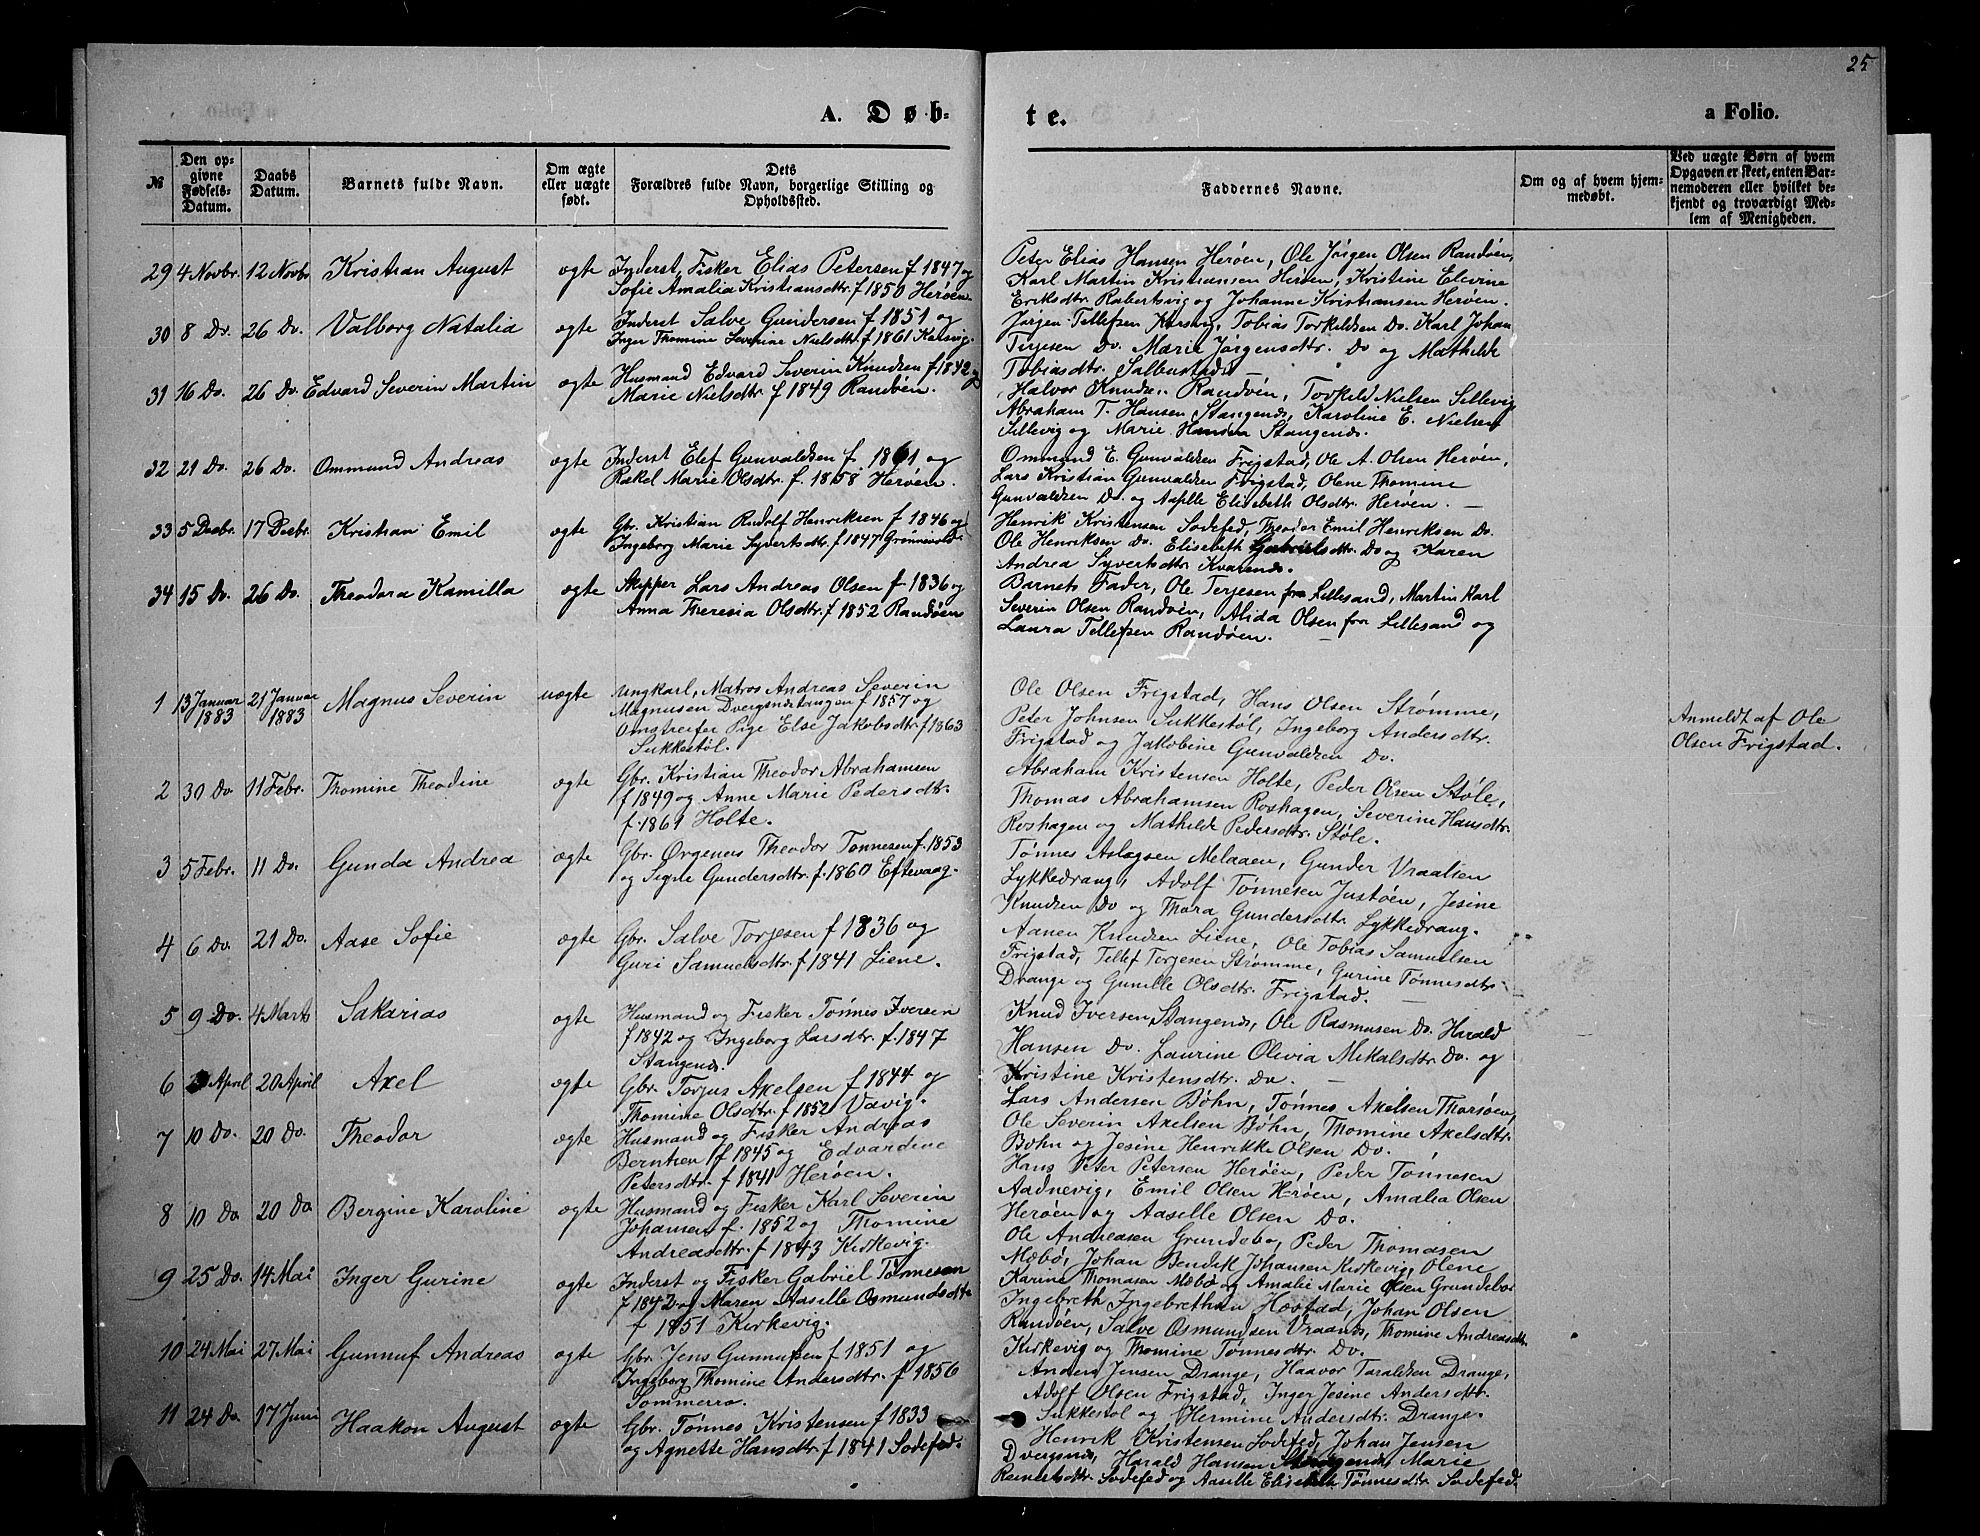 25
A. Døb-
te.
a Folio.
№
Den op-
givne
Fødsels-
Datum.
Daabs
Datum.
Barnets fulde Navn.
Om ægte
eller uægte
født.
Dets
Forældres fulde Navn, borgerlige Stilling og
Opholdssted.
Faddernes Navne.
Om og af hvem hjem-
medøbt.
Ved uægte Børn af hvem
Opgaven er skeet, enten Bar-
nemoderen eller hvilket be-
kjendt og troværdigt Med-
lem af Menigheden.
29 4 Novbr. 12 Novbr Kristian August ægte Inderst, Fisker Elias Petersen f 1847 og
Sofie Amalia Kristiansdtr. f 1850 Herøen
Peter Elias Hansen Herøen, Ole Jørgen Olsen Randøen,
Karl Martin Kristiansen Herøen, Kristine Elevine
Eriksdtr. Rabertsvig og Johanne Kristiansen Herøen.
30 8 Do. 26 Do. Valborg Natalia ægte Inderst Salve Gundersen f 1851 og
Inger Thomine Severine Nielsdtr. f 1861 Kalsvig.
Jørgen Tellefsen Tobias Torkildsen Do. Karl Johan
Terjesen Do. Marie Jørgensdtr. Do og Mathilde
Tobiasdtr. Salbustad.
31 16 Do. 26 Do. Edvard Severin Martin ægte Husmand Edvard Severin Knudsen f 1842 og
Marie Nielsdtr f 1849 Randøen.
Halvor Knudsen Randøen, Torkild Nielsen Sillevig
Abraham T. Hansen Stangends, Karoline E. Nielsen
Sillevig og Marie Hansen Stangends.
32 21 Do. 26 Do. Ommund Andreas ægte Inderst Elef Gunvaldsen f. 1861 og
Rakel Marie Olsdtr. f. 1858 Herøen.
Ommund E. Gunvaldsen Frigstad, Ole A. Olsen Herøen,
Lars Kristian Gunvaldsen Frigstad, Olene Thomine
Gunvaldsen Do. og Aaselle Elisebeth Olsdtr. Herøen. —
33 5 Decbr. 17 Decbr. Kristian Emil ægte Gbr. Kristian Rudolf Henriksen f 1846 og
Ingeborg Marie Syvertsdtr. f 1847
Henrik Kristensen Sodefed, Theodor Emil Henriksen Do.
Ole Henriksen Do. Elisebeth Gabrielsdtr. Do og Karen
Andrea Syvertsdtr. Kvarends.
34 15 Do. 26 Do. Theodora Kamilla ægte Skipper Lars Andreas Olsen f 1836 og
Anna Theresia Olsdtr. f 1852 Randøen
Barnets Fader, Ole Terjesen fra Lillesand, Martin Karl
Severin Olsen Randøen, Alida Olsen fra Lillesand og
Laura Tellefsen Randøen. —
1 13 Januar 1883 21 Januar 1883 Magnus Severin uægte Ungkarl, Matros Andreas Severin
Magnusen Dvergsnestangen f 1857 og
Omstreifer Pige Else Jakobsdtr. f 1863
Sukkestøl.
Ole Olsen Frigstad, Hans Olsen Strømme,
Peter Johnsen Sukkestøl, Ingeborg Andersdtr.
Frigstad og Jakobine Gunvaldsen Do.
Anmeldt af Ole
Olsen Frigstad.
2 30 Do. 11 Febr. Thomine Theodine ægte Gbr. Kristian Theodor Abrahamsen
f 1849 og Anne Marie Pedersdtr.
f. 1861 Holte.
Abraham Kristensen Holte, Peder Olsen Støle,
Thomas Abrahamsen Roshagen, Severine Hansdtr.
Roshagen og Mathilde Pedersdtr. Støle.
3 5 Febr. 11 Do. Gunda Andrea ægte Gbr. Ørgenus Theodor Tønnesen f. 1853
og Signe Gundersdtr. f. 1860 Eftevaag.
Tønnes Aslagsen Melaaen, Gunder Vraalsen
Lykkedrang, Adolf Tønnesen Justøen, Jesine
Knudsen Do og Thora Gundersdtr. Lykkedrang.
4 6 Do. 21 Do. Aase Sofie ægte Gbr. Salve Torjesen f 1836 og
Guri Samuelsdtr. f 1841 Liene.
Aanen Knudsen Liene, Ole Tobias Samuelsen
Frigstad, Tellef Torjesen Strømme, Gurine Tønnesdtr.
Drange og Gunille Olsdtr. Frigstad. —
5 9 Do. 4 Marts Sakarias ægte Husmand og Fisker Tønnes Iversen
f 1842 og Ingeborg Larsdtr. f. 1847
Stangends.
Knud Iversen Stangends, Ole Rasmusen Do. Harald
Hansen Do. Laurine Olivia Mikalsdtr. Do. og
Kristine Kristensdtr. Do. —
6 April 20 April Axel ægte Gbr. Torjus Axelsen f 1844 og
Thomine Olsdtr. f 1852 Vavig.
Lars Andersen Bøhn, Tønnes Axelsen Thorsøen,
Ole Severin Axelsen Bøhn, Thomine Axelsdtr.
Bøhn og Jesine Henrikke Olsen Do.
7 10 Do. 20 Do. Theodor ægte Husmand og Fisker Andreas
Berntsen f 1845 og Edvardine
Petersdtr. f 1841 Herøen.
Hans Peter Petersen Herøen, Peder Tønnesen
Aadnevig, Emil Olsen Herøen, Amalia Olsen
Herøen og Aaselle Olsen Do.
8 10 Do 20 Do Bergine Karoline ægte Husmand og Fisker Karl Severin
Johansen f. 1852 og Thomine
Andreasdtr. f 1843 Kirkevig.
Ole Andreasen Grundebø, Peder Thomasen
Mæbø, Johan Bendik Johansen Kirkevig, Olene
Karine Thomasen Mæbø og Amalie Marie Olsen Grundebø
9 25 Do. 14 Mai Inger Gurine ægte Inderst og Fisker Gabriel Tønnesen
f 1842 og Maren Aaselle Osmundsdtr.
f 1851 Kirkevig.
Ingebreth Ingebrethsen Høvstad, Johan Olsen
Randøen, Salve Osmundsen Vraands, Thomine Andreasdtr.
Kirkevig og Thomine Tønnesdtr. Do.
10 24 Mai 27 Mai Gunnuf Andreas ægte Gbr. Jens Gunnufsen f 1851 og
Ingeborg Thomine Andersdtr. f 1856
Sommerro.
Anders Jensen Drange, Haavor Taraldsen Drange,
Adolf Olsen Frigstad, Inger Jesine Andersdtr.
Sukkestøl og Hermine Andersdtr. Drange.
11 24 Do. 17 Juni Haakon August ægte Gbr. Tønnes Kristensen f 1833
og Agnette Hansdtr. f 1841 Sodefed.
Henrik Kristensen Sodefed, Johan Jensen
Dvergsnes, Harald Hansen Stangends, Marie
Reinertsdtr. Sodefed og Aaselle Elisebeth Tønnesdtr. Sodefed.